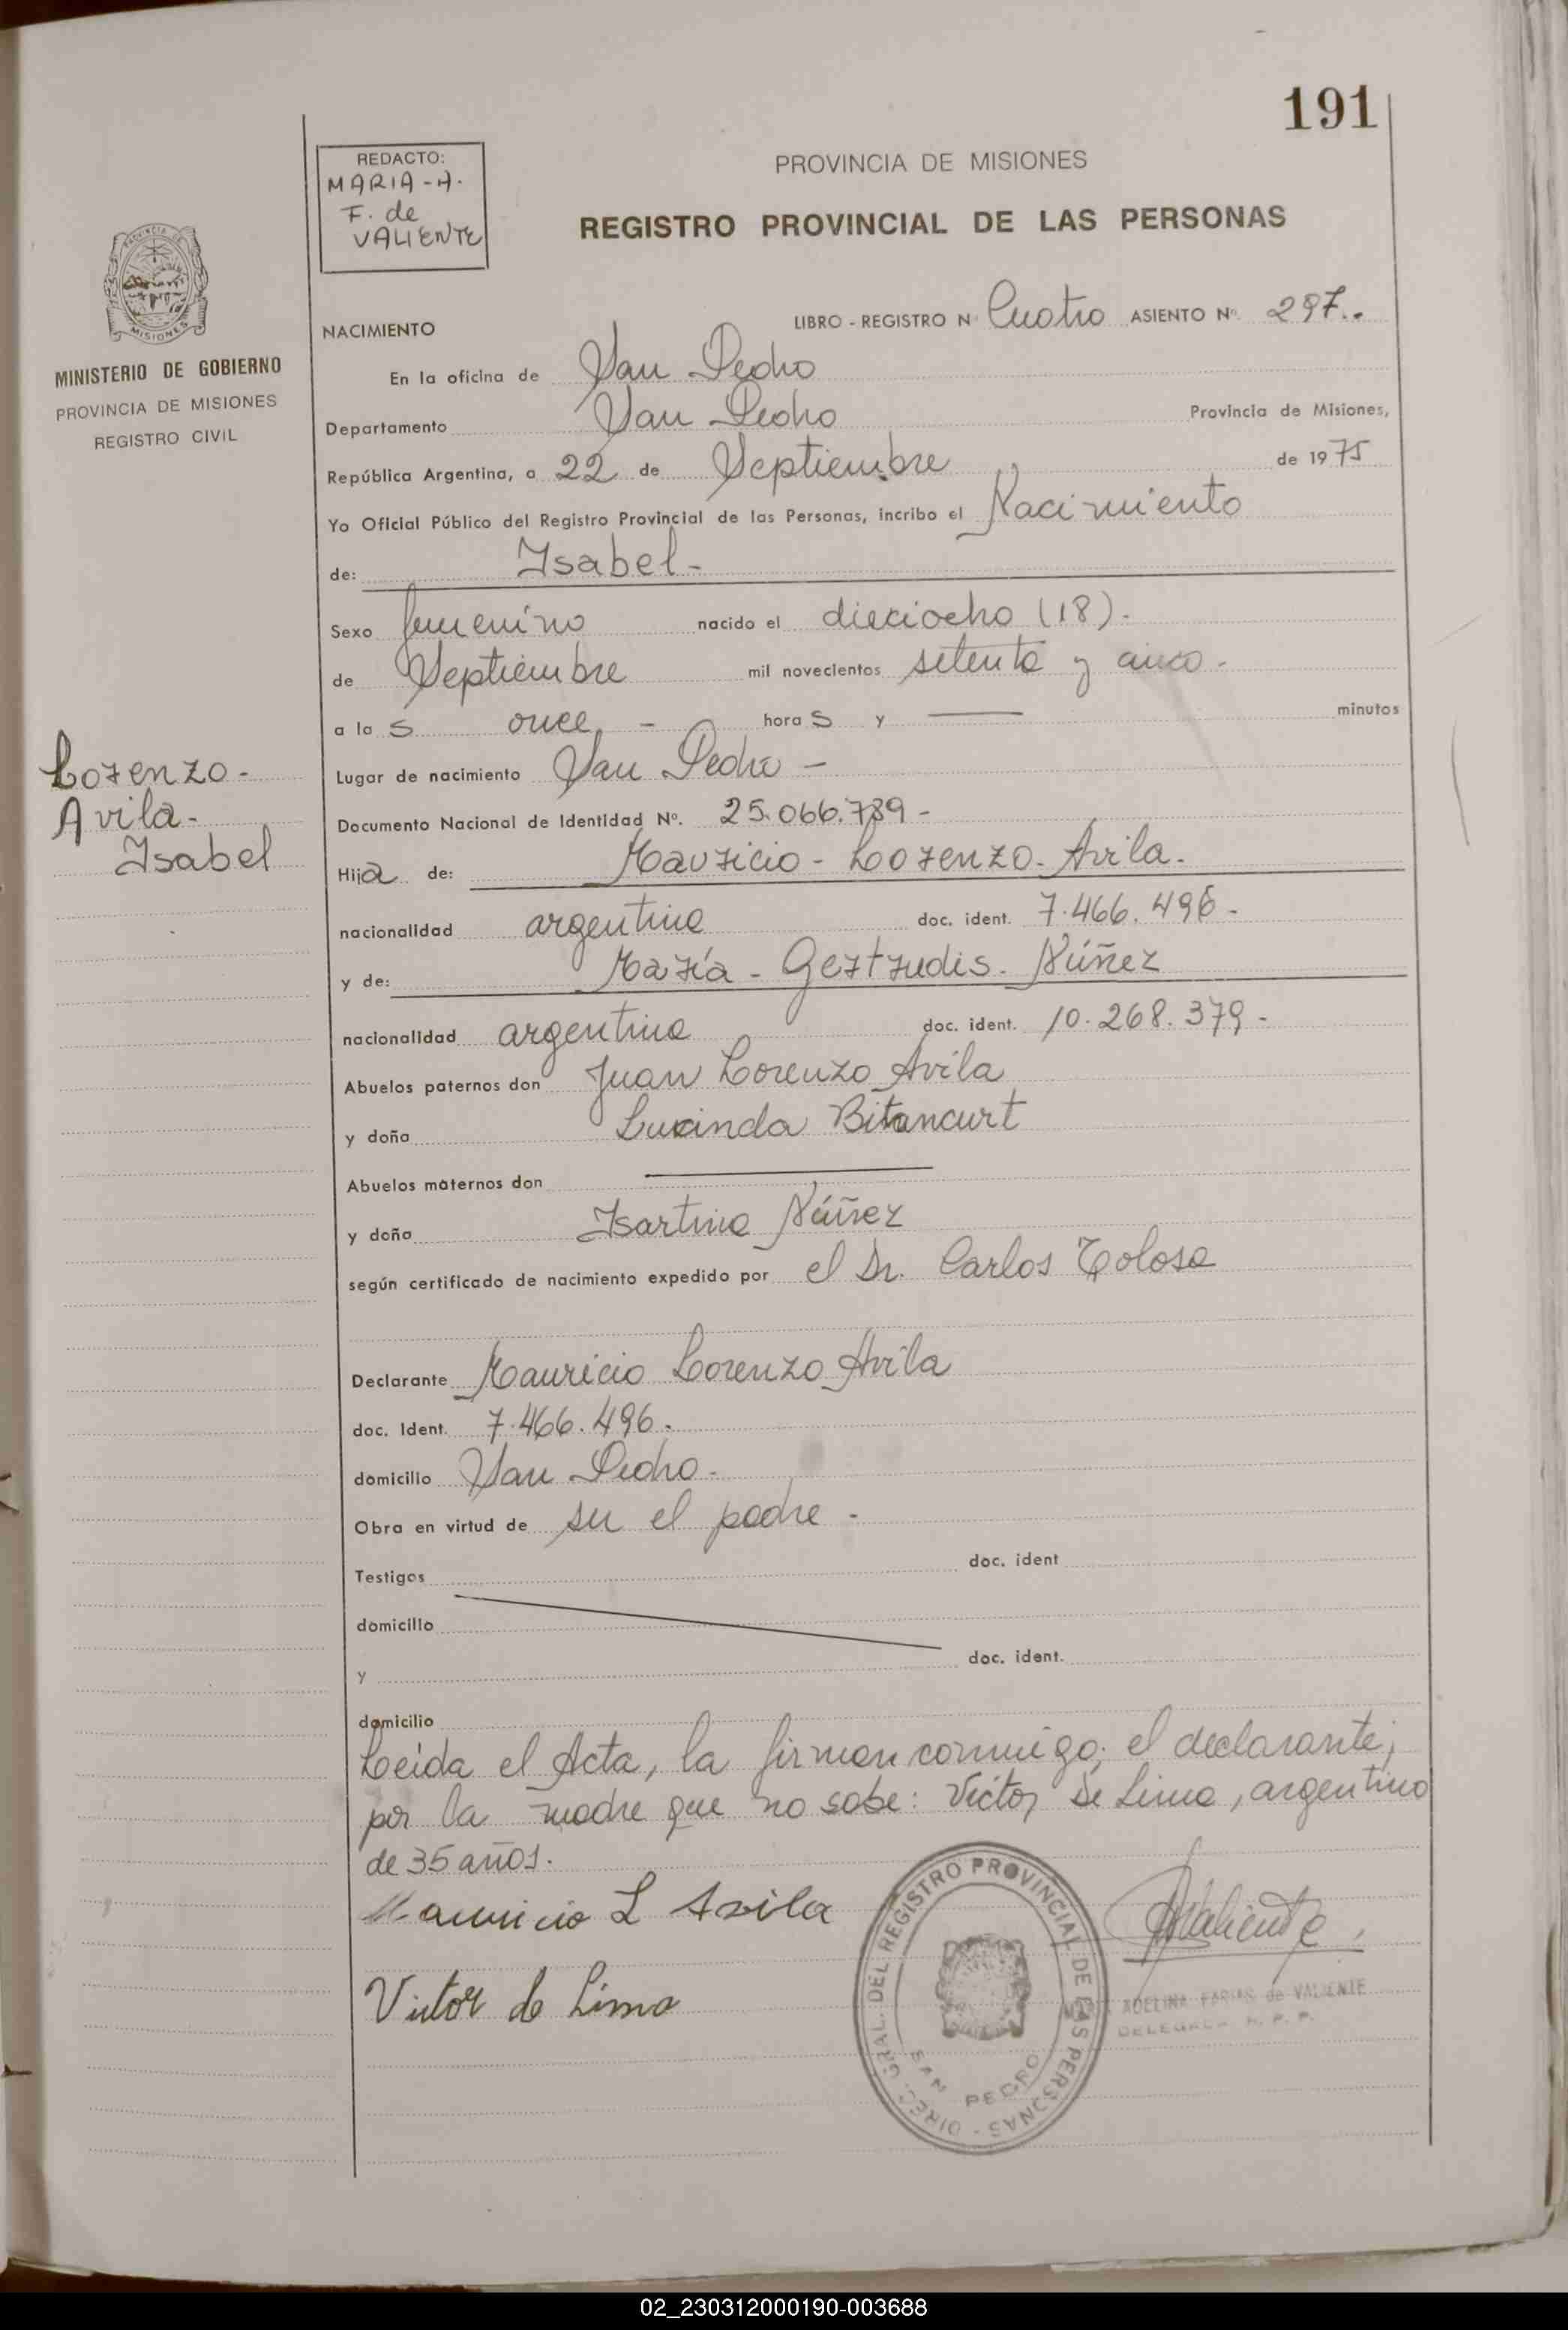 191
REDACTO:
MARIA-A.
F. de
VALIENTE
PROVINCIA DE MISIONES
REGISTRO PROVINCIAL DE LAS PERSONAS
PROVINCIA DE
MISIONES
MINISTERIO DE GOBIERNO
PROVINCIA DE MISIONES
REGISTRO CIVIL
NACIMIENTO LIBRO - REGISTRO N Cuatro ASIENTO Nº. 297..
En la oficina de San Pedro
Departamento San Pedro Provincia de Misiones,
República Argentina, a 22 de Septiembre de 1975
Yo Oficial Público del Registro Provincial de las Personas, incribo el Nacimiento
de: Isabel-
Sexo femenino nacido el dieciocho (18).
de Septiembre mil novecientos setenta y cinco.
a las once, - horas y — minutos
Lorenzo-
Avila-
Isabel
Lugar de nacimiento San Pedro -
Documento Nacional de Identidad Nº. 25.066.789-
Hija de: Mauricio - Lorenzo - Avila.
nacionalidad argentina doc. ident. 7.466.496-
y de: María - Gertrudis - Núñez
nacionalidad argentina doc. ident. 10.268.379-
Abuelos paternos don Juan Lorenzo Avila
y doña Lucinda Bitancurt
Abuelos maternos don —
y doña Núñez
según certificado de nacimiento expedido por el Dr. Carlos Tolosa
Declarante Mauricio Lorenzo Avila
doc. Ident. 7.466.496.
domicilio San Pedro.
Obra en virtud de su el padre -
Testigos doc. ident
domicilio
y doc. ident.
domicilio
Leída el Acta, la firman conmigo; el declarante;
por la madre que no sabe: Victor De Lima, argentino
de 35 años.
Mauricio L Avila
Victor de Lima
Valiente
DIREC. GRAL. DEL REGISTRO PROVINCIAL DE LAS PERSONAS -
SAN PEDRO
ADELINA FARIAS de VALIENTE
DELEGADA R. P. P.
02_230312000190-003688